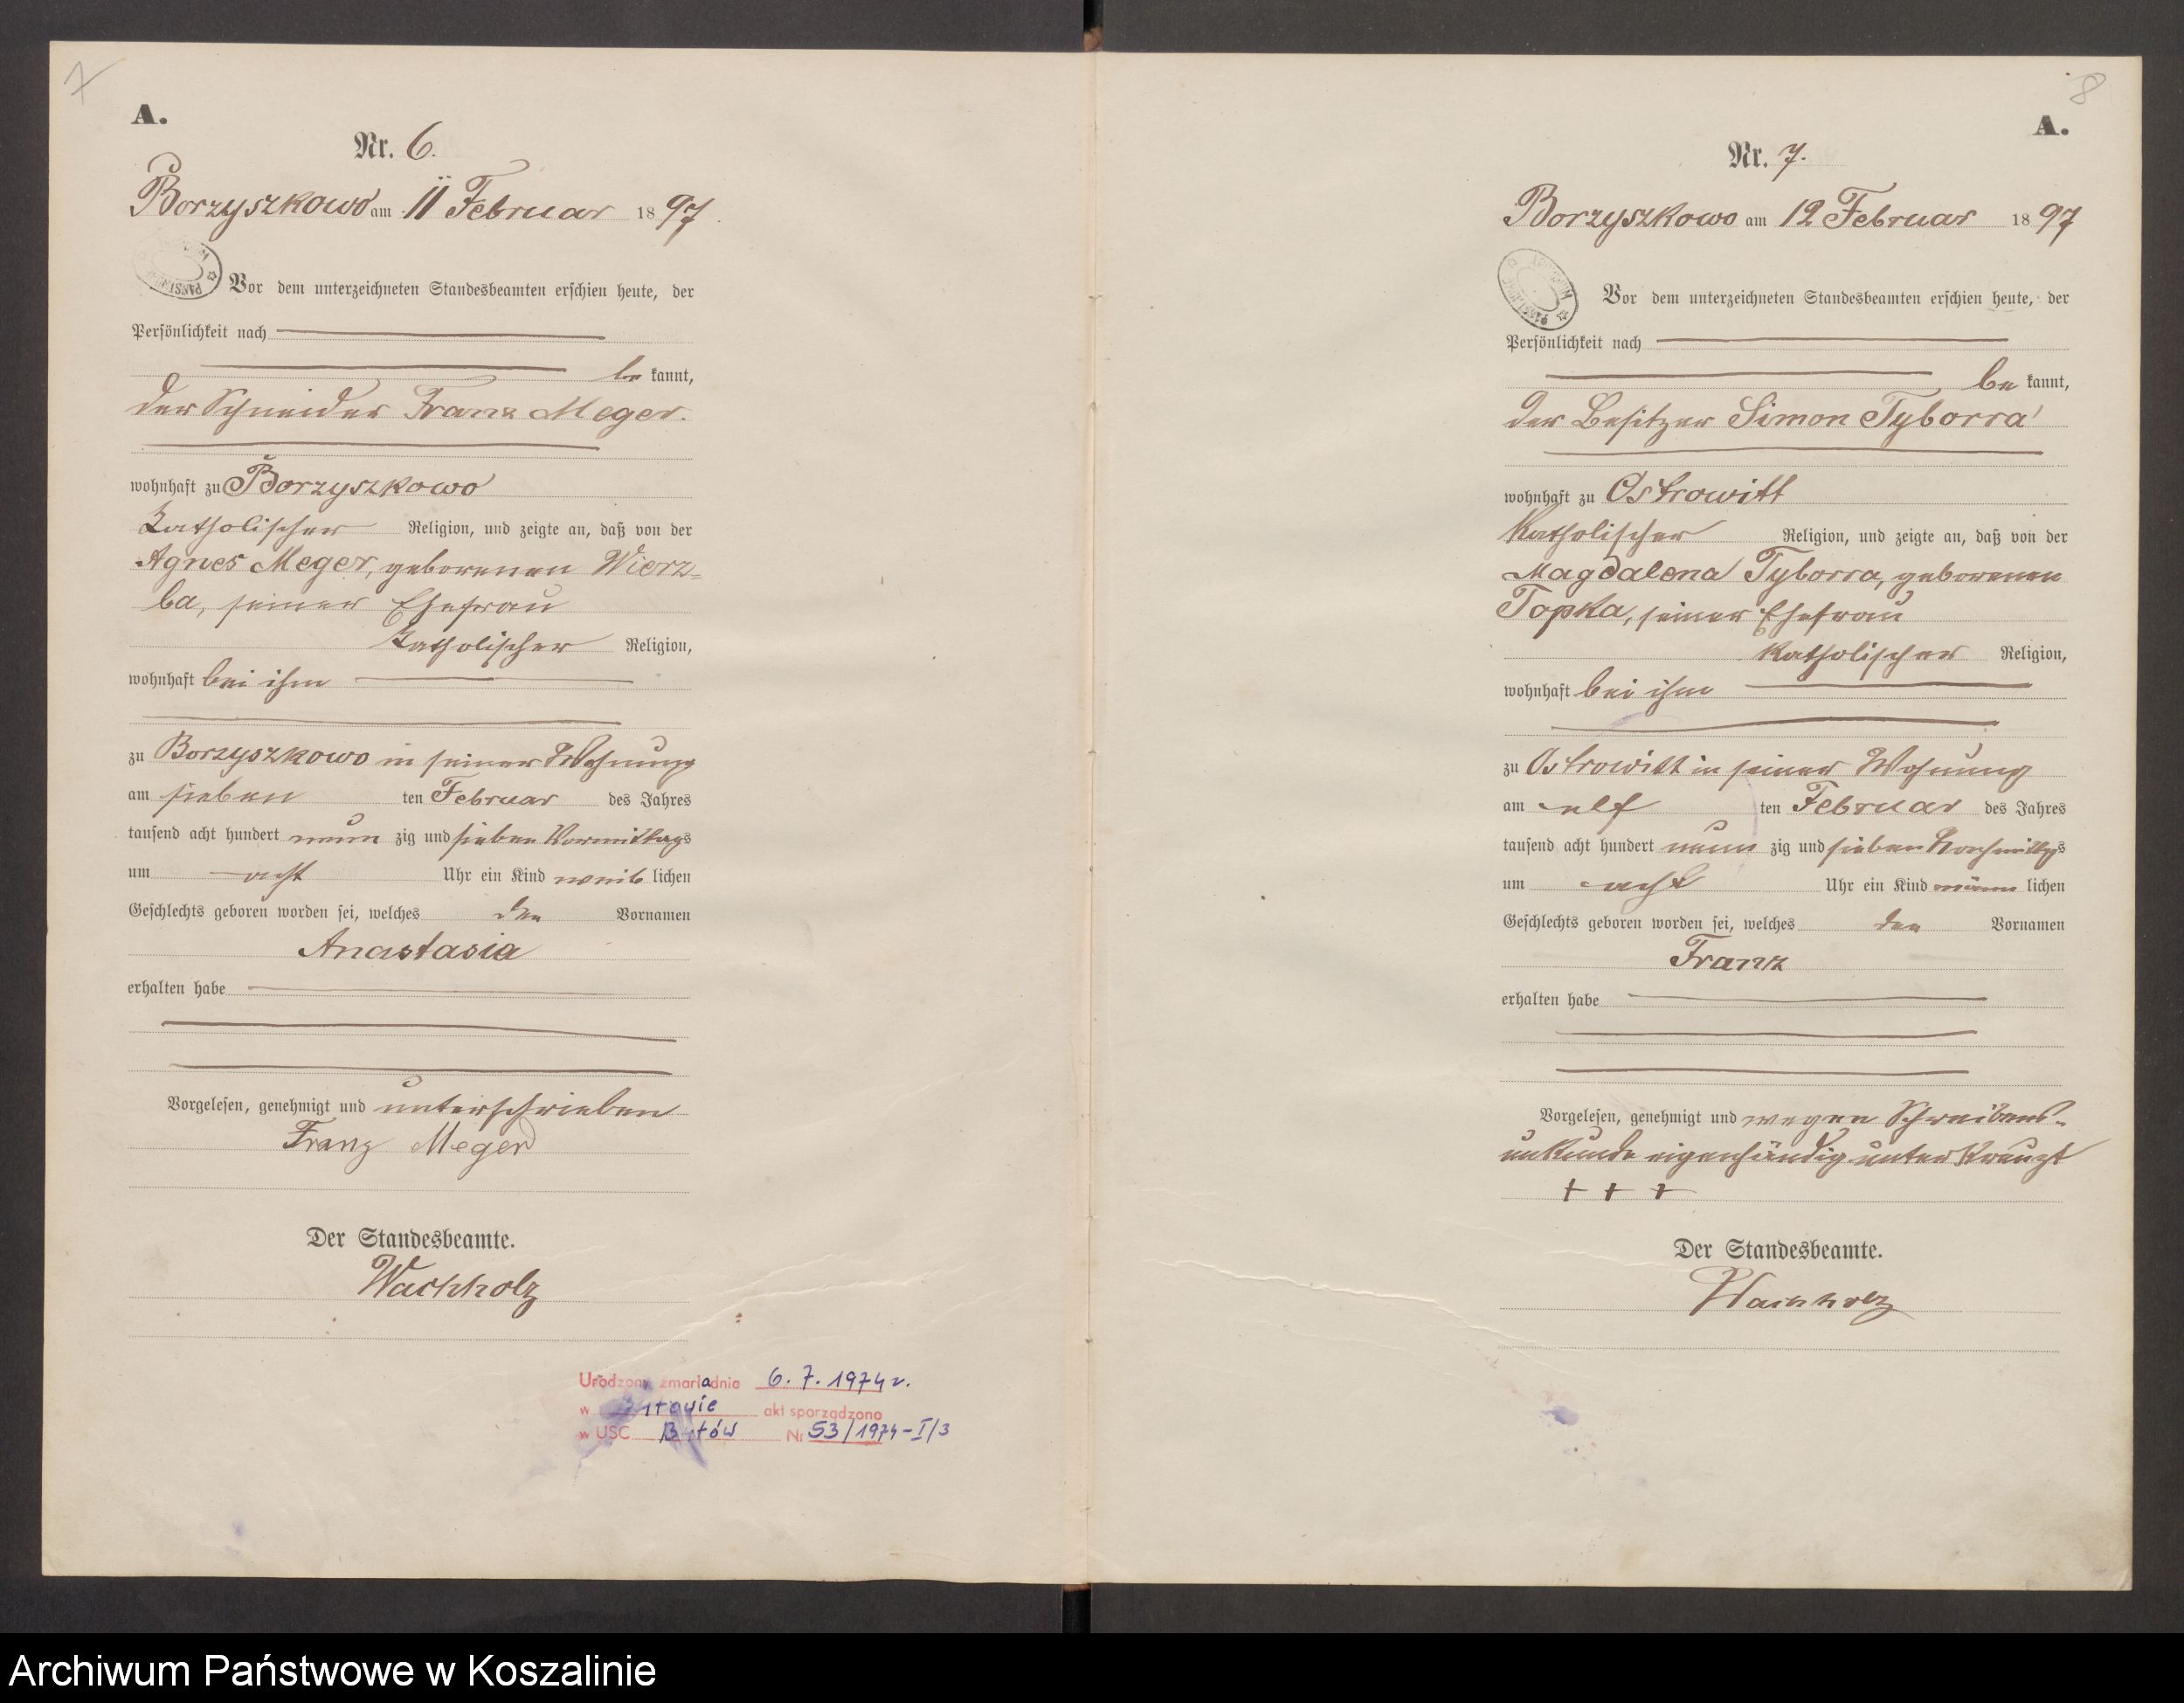 7
A.
Nr. 6.
Borzyszkowo am 11 Februar 1897.
Vor dem unterzeichneten Standesbeamten erschien heute, der
Persönlichkeit nach
be kannt,
der Schneider Franz Meger.
wohnhaft zu Borzyszkowo
katholischer Religion, und zeigte an, daß von der
Agnes Meger, geborenen Wierz=
ba, seiner Ehefrau
katholischer Religion,
wohnhaft bei ihm
zu Borzyszkowo in seiner Wohnung
am sieben ten Februar des Jahres
tausend acht hundert neun zig und sieben Vormittags
um acht Uhr ein Kind weib lichen
Geschlechts geboren worden sei, welches den Vornamen
Anastasia
erhalten habe
Vorgelesen, genehmigt und unterschrieben
Franz Meger
Der Standesbeamte.
Wachholz
Urodzony zmarładnia 6. 7. 1974 r.
w Bytowie akt sporządzono
w USC Bytów Nr 53/1974-I/3
8
A.
Nr. 7.
Borzyszkowo am 12 Februar 1897
Vor dem unterzeichneten Standesbeamten erschien heute, der
Persönlichkeit nach
be kannt,
der Besitzer Simon Tyborra
wohnhaft zu Ostrowitt
katholischer Religion, und zeigte an, daß von der
Magdalena Tyborra, geborenen
Topka, seiner Ehefrau
katholischer Religion,
wohnhaft bei ihm
zu Ostrowitt in seiner Wohnung
am elf ten Februar des Jahres
tausend acht hundert neun zig und sieben Nachmittags
um acht Uhr ein Kind männ lichen
Geschlechts geboren worden sei, welches den Vornamen
Franz
erhalten habe
Vorgelesen, genehmigt und wegen Schreibens=
unkunde eigenhändig unterkreuzt
+ + +
Der Standesbeamte.
Wachholz
Archiwum Państwowe w Koszalinie